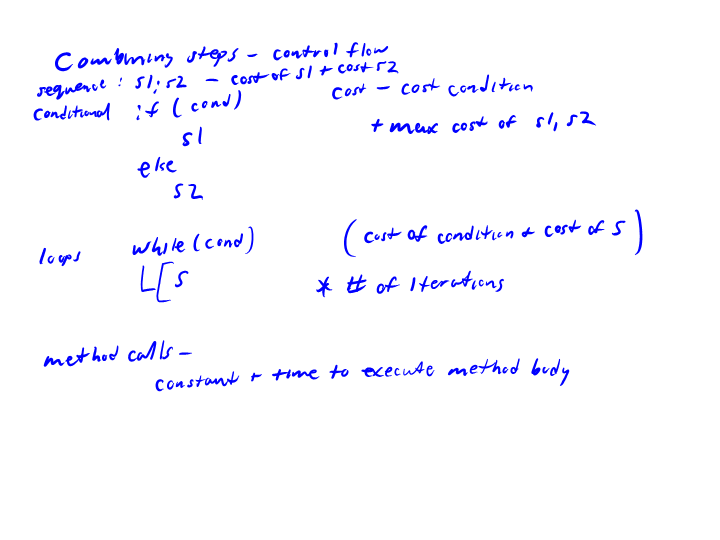 Combining steps - control flow
sequence : s1; s2 - cost of s1 + cost s2
conditional if (cond) cost - cost condition
s1 + max cost of s1, s2
else
s2
loops while (cond) (cost of condition + cost of S)
S * # of iterations
method calls -
constant + time to execute method body